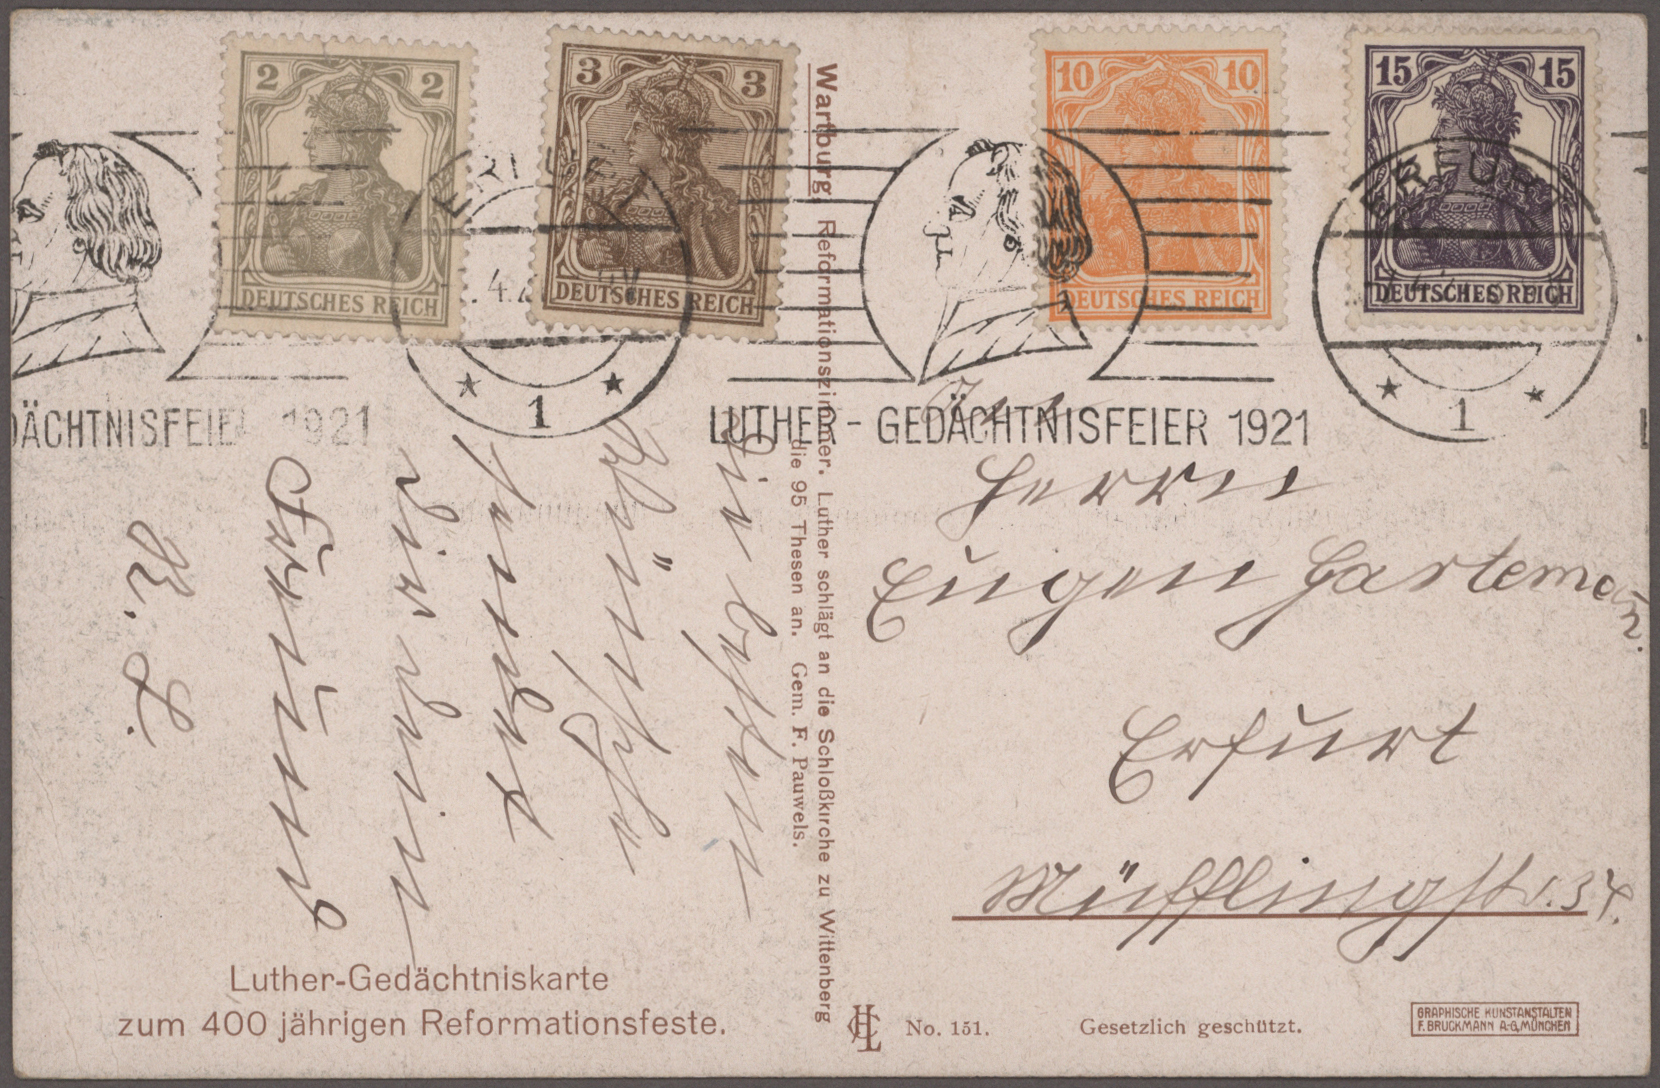 2 2
DEUTSCHES REICH
3 3
DEUTSCHES REICH
10 10
DEUTSCHES REICH
15 15
DEUTSCHES REICH
ERFURT
1
ERFURT
1
DÄCHTNISFEIER 1921
LUTHER-GEDÄCHTNISFEIER 1921
Die besten
Wünsche
sendet
dir dein
Freund
K. L.
Wartburg, Reformationszimmer. Luther schlägt an die Schloßkirche zu Wittenberg
die 95 Thesen an. Gem. F. Pauwels.
Herrn
Eugen
Erfurt
Müfflingstr. 34.
Luther-Gedächtniskarte
zum 400 jährigen Reformationsfeste.
No. 151.
Gesetzlich geschützt.
GRAPHISCHE KUNSTANSTALTEN
F. BRUCKMANN A-G, MÜNCHEN